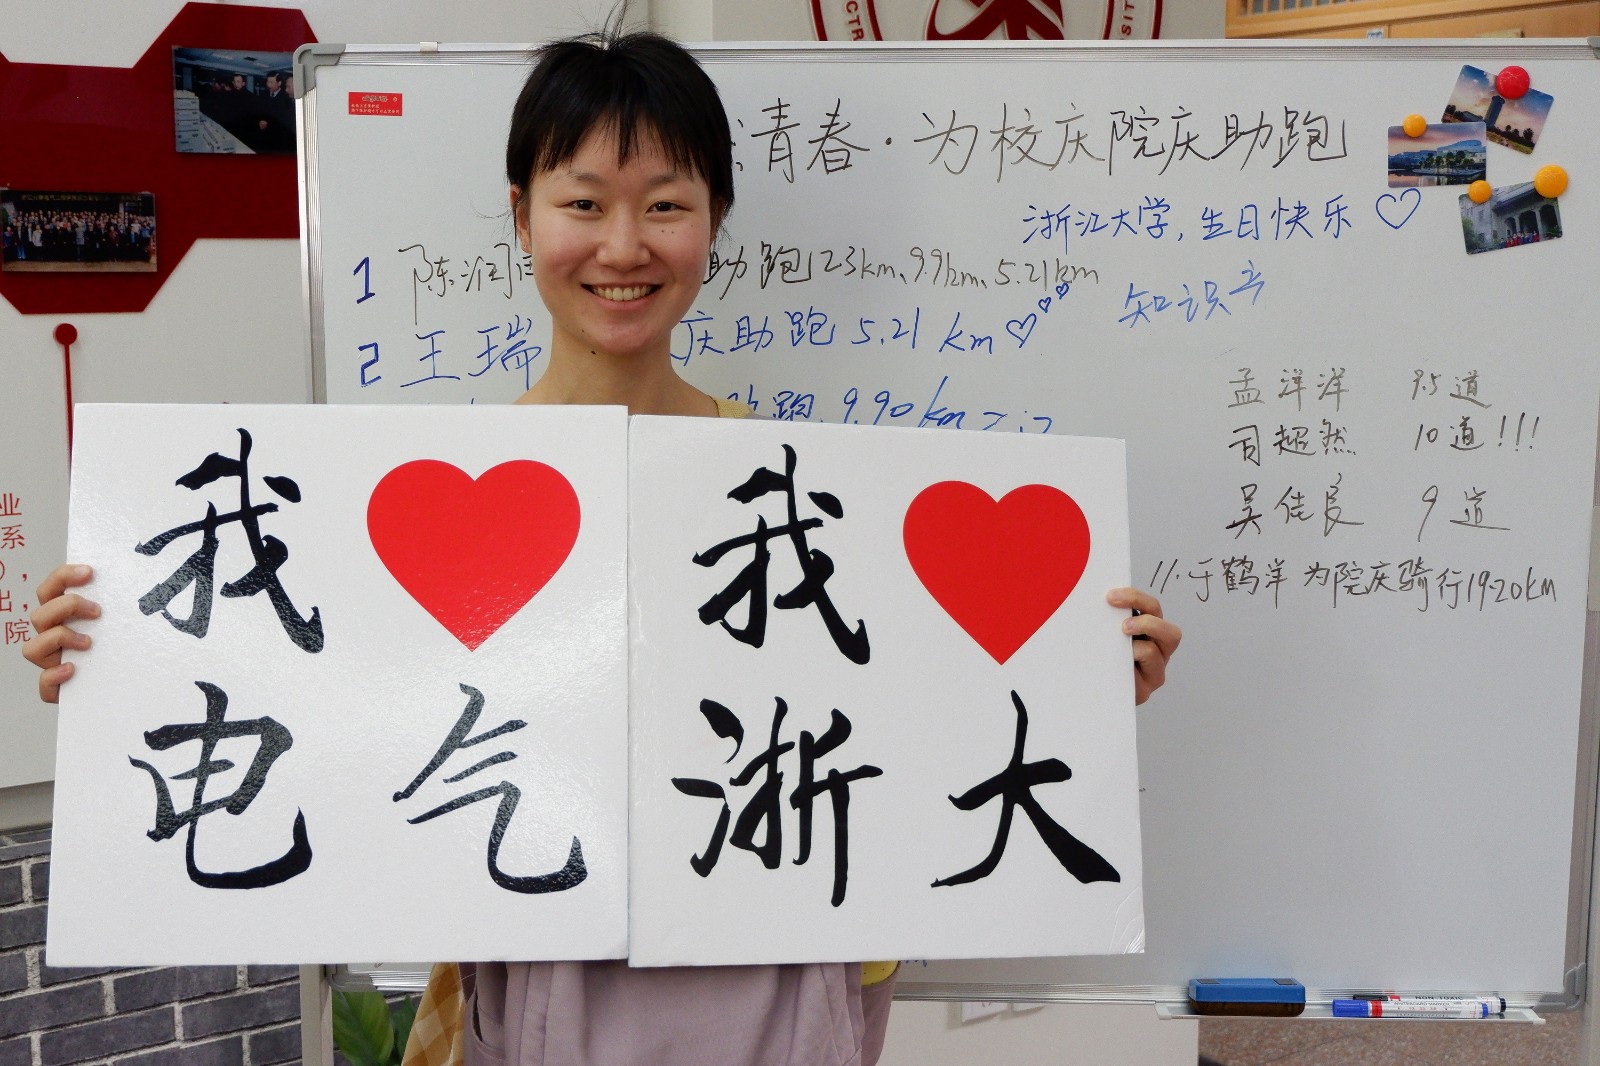 青春·为校庆院庆助跑
浙江大学,生日快乐♡
1 陈润 助跑 23km、9.9km、5.21km
知识
2 王瑞 庆助跑 5.21 km
助跑 9.90 km
孟洋洋 道
司超然 10道!!!
吴佳良 9道
11.于鹤洋 为院庆骑行19.20km
我❤
电气
我❤
浙大
业
系
),
出,
院
NON-TOXIC
WHITEBOARD MARKER